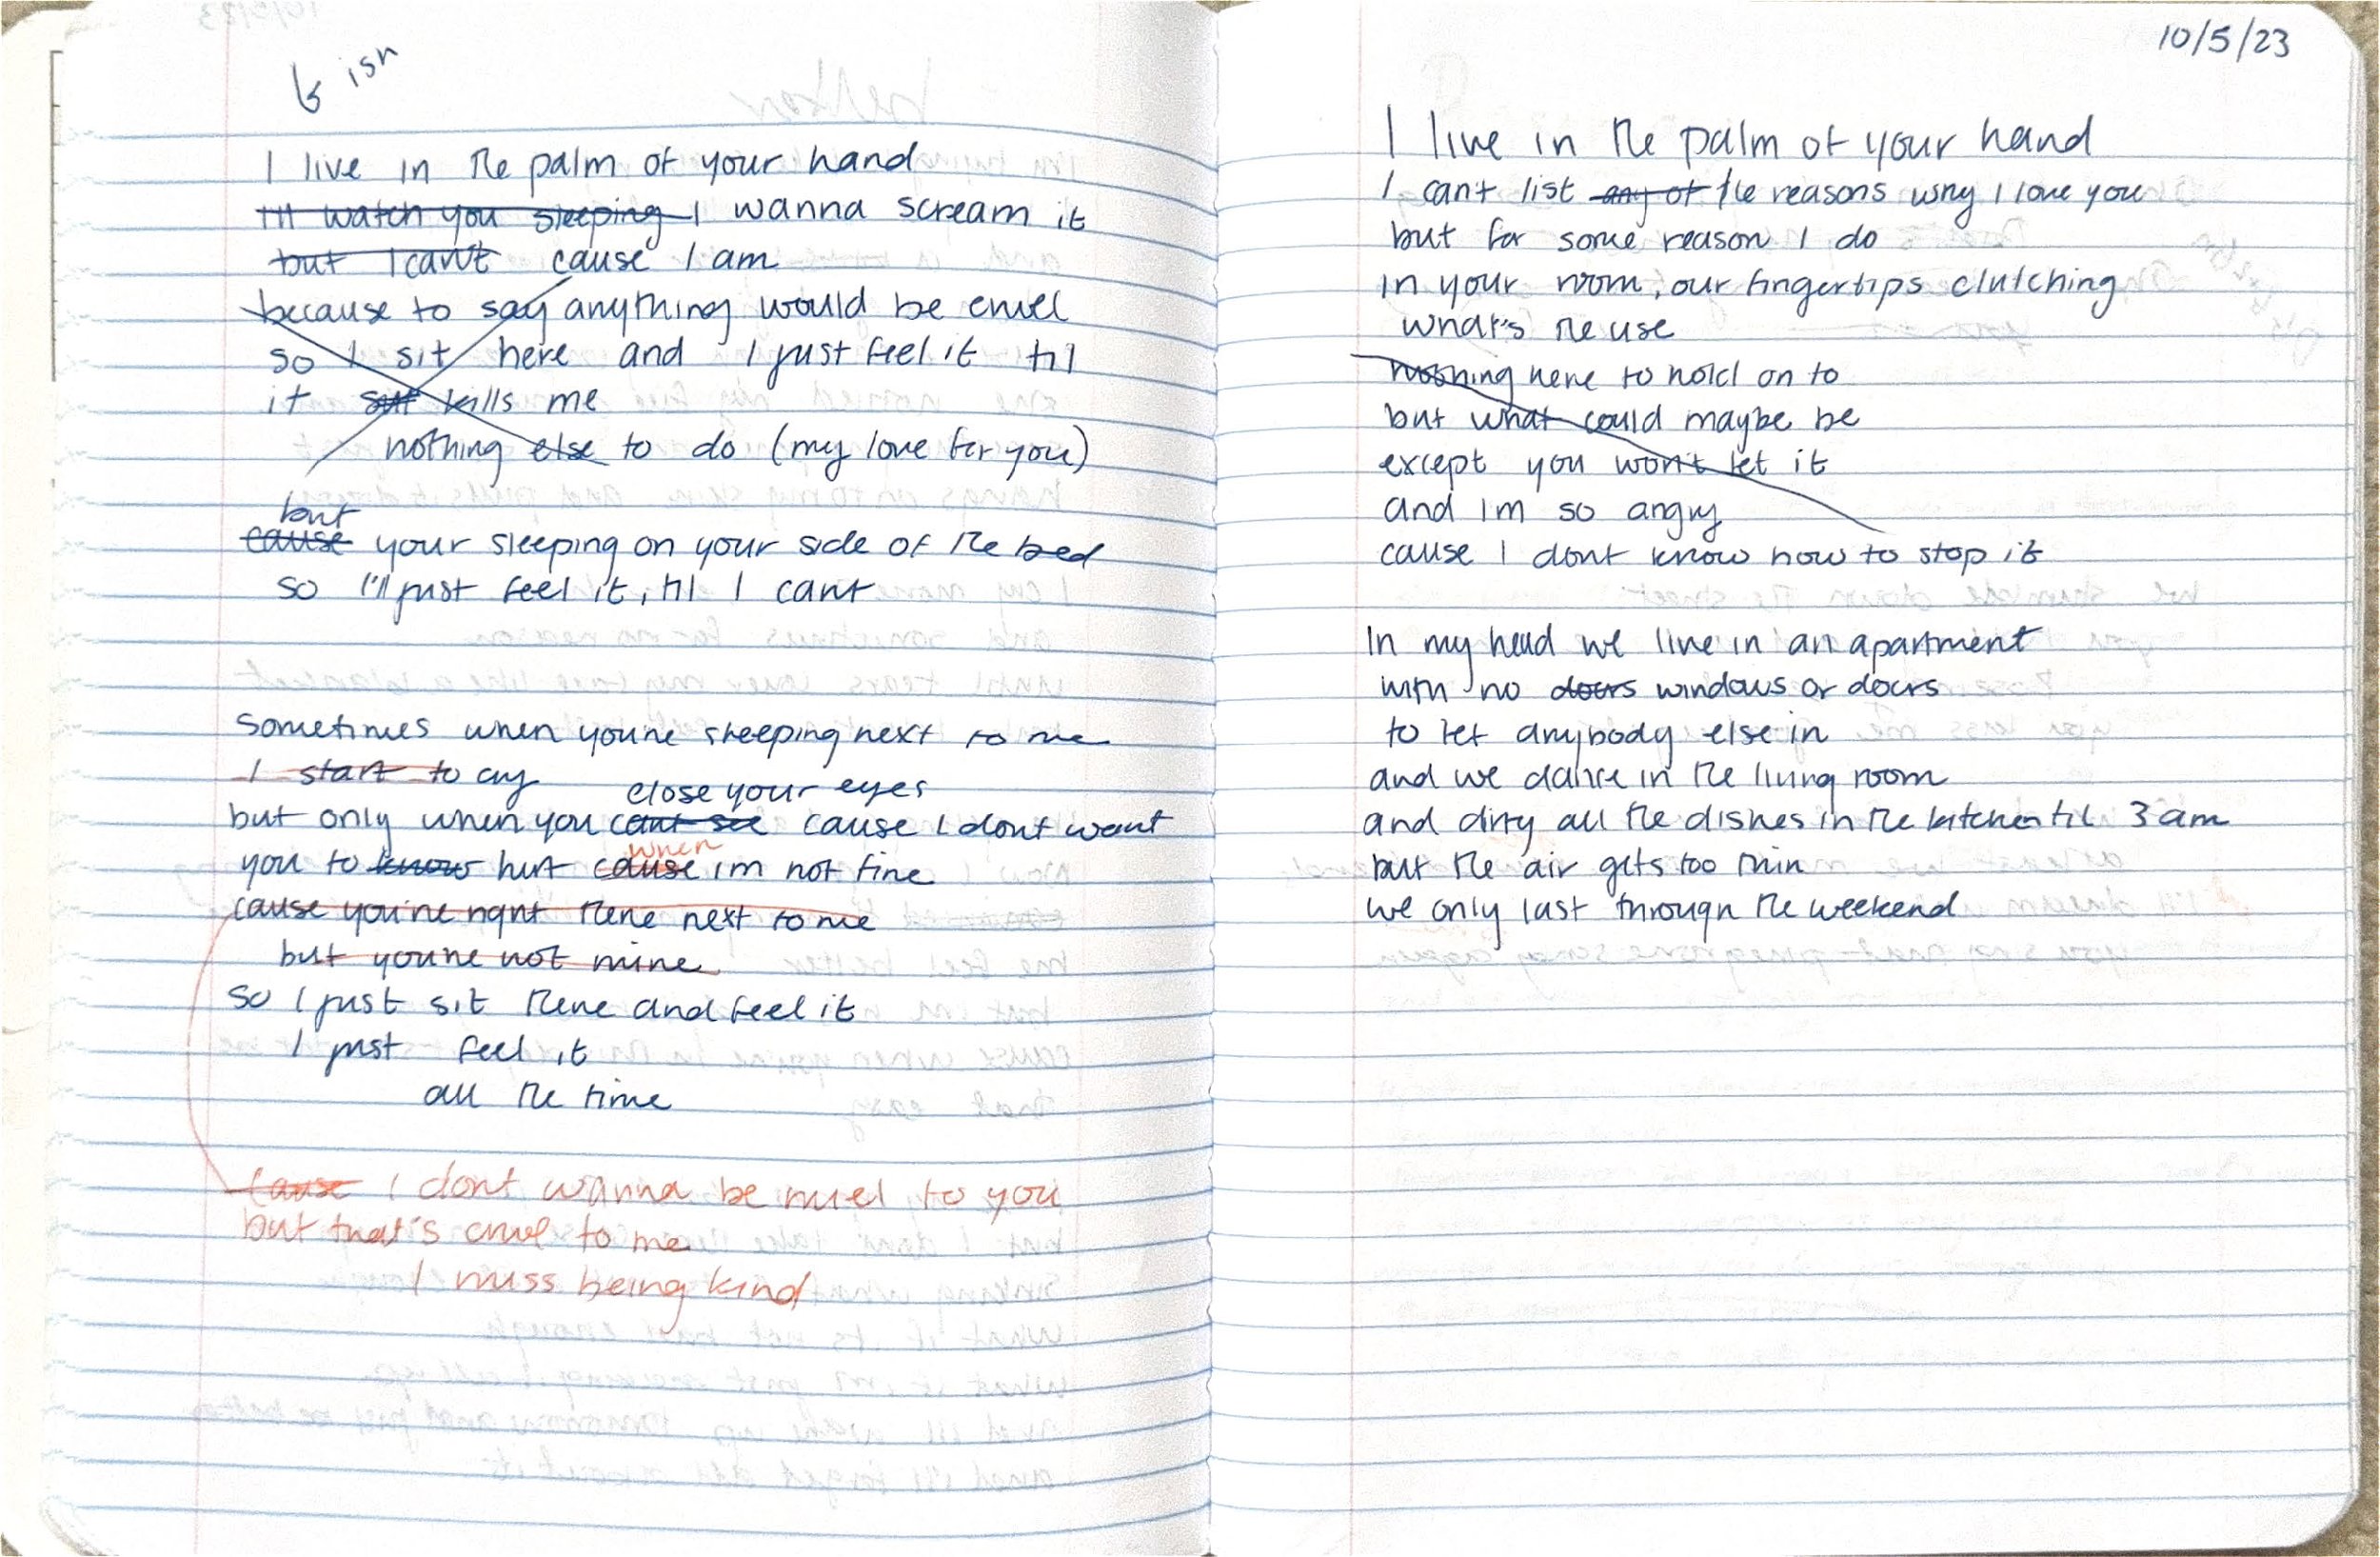 ish
I live in the palm of your hand
I'll watch you sleeping I wanna scream it
but I can't cause I am
because to say anything would be cruel
so I sit here and I just feel it til
it kills me
nothing else to do (my love for you)
but
cause your sleeping on your side of the bed
so I'll just feel it, til I cant
sometimes when you're sleeping next to me
I start to cry
close your eyes
but only when you cant see cause I dont want
when
you to know hurt cause im not fine
cause you're right there next to me
but you're not mine
so I just sit there and feel it
I just feel it
all the time
cause I dont wanna be cruel to you
but that's cruel to me
I miss being kind
10/5/23
I live in the palm of your hand
I can't list any of the reasons why I love you
but for some reason I do
in your room, our fingertips clutching
what's the use
nothing here to hold on to
but what could maybe be
except you won't let it
and Im so angry
cause I dont know how to stop it
In my head we live in an apartment
with no doors windows or doors
to let anybody else in
and we dance in the living room
and dirty all the dishes in the kitchen til 3 am
but the air gets too thin
we only last through the weekend